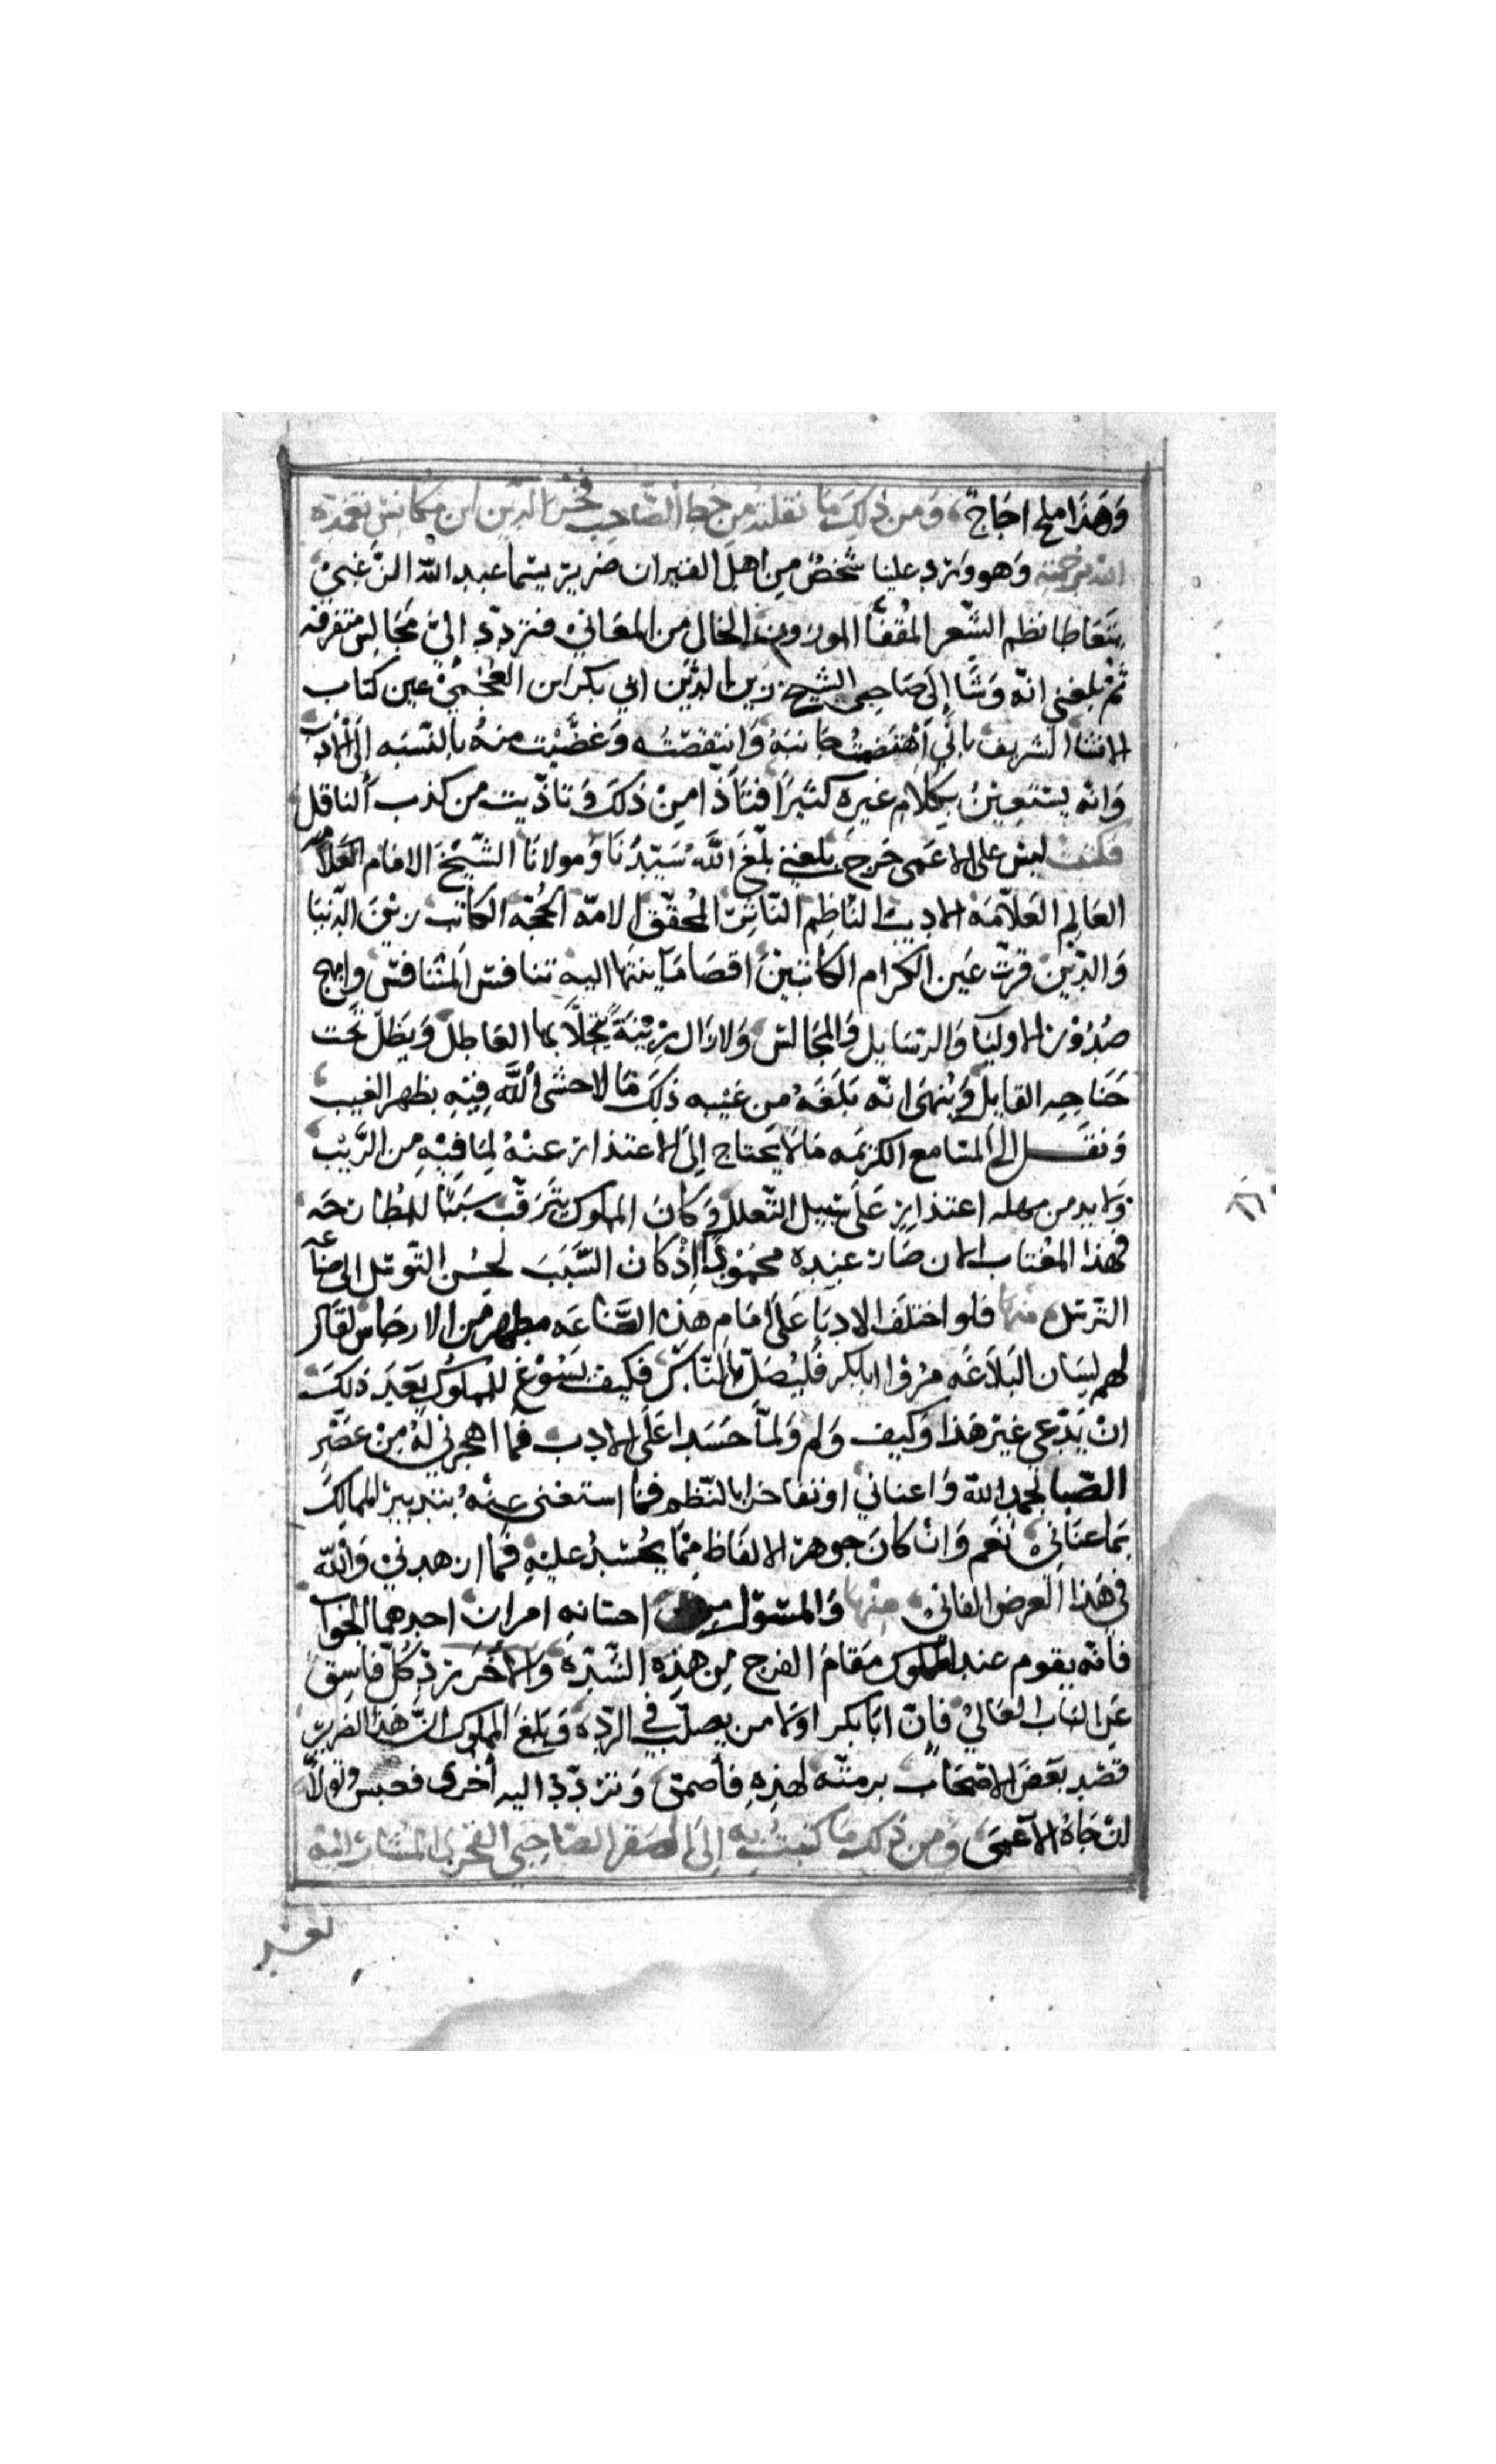 وَهَذَا ملح اجَاج، وَمن ذلِكَ مَا نقلته من خط الصَّاحِب فخر الدّين ابن مكانس تغمده
الله برحمته وَهو ورد علينا شخصٌ من اهل القيروان ضرير يسما عبد الله الزغبي
يتعاطا نظم الشّعر المقفّا الموزون الخال من المعَاني فتردّد اليّ مجَالِس متفرقه
ثمّ بلغني انّه وَشَا إلى صَاحبي الشيخ زين الدّين ابي بكر ابن العجمي عين كتاب
الانشا الشريف باني اهتضمت جانبَهُ وَانتقصته وَغضّيت منهُ بالنّسبَه الى الادب
وَانه يستعين بكلام غيره كثيرًا فتأذا من ذلكَ وَتاذيت من كذب الناقل
فكتبت ليس على الاعمى حَرج يلغني بلّغَ اللَّه سَيّدنَا وَمولانَا الشّيْخ الامَام العَلامه
العَالِم العَلاّمَه الاديب النّاظِم النّاثر المُحقّق لامه الحجه الكاتب زينَ الدّنيَا
وَالدّين قرّت عَين الكرام الكاتبين اقصَا مَا ينتها اليه تنافس المتنافس وابهج
صُدُوْر الاوليَا وَالرسَايل وَالمجَالس وَلازال زِيْنَةً يتحلاَّ بها العَاطِل وَيظلّ تحت
جَنَاحِه القايل وَيُنهى انّه بَلَغَهُ من غَيْبه ذلكَ مَا لاحشى اللَّه فِيْهِ بظهر الغيب
وَنقل الى المسَامع الكريمه مَا لا يحتاج الى الاعتذار عنْهُ لِمَا فِيْهِ من الرَّيْب
وَلابد من مهله اعتذار عَلى سَبيل التّعلل وَكَانَ المملوك يتَرَقّب سَببًا للمُطارحَه
فهَذا المغْتاب الان صَار عنده محمُوْدًا اِذْ كانَ السَّبَبَ لحسُن التّوسّل الى صنَاعَه
التّرسّل منها فلو اختلف الادبَا عَلى امَام هذه الصّناعَه مطهر من الارجَاس لقَال
لهم لِسَان البَلاَغَه مرُوْا ابابكر فَليُصَلّ بالنّاس، فكيف يَسُوْغ للمملُوك بَعْدَ ذلكَ
انْ يَدّعي غير هَذا وَكيف وَلم وَلمّا حَسَدا عَلى الادب فَما اهجرني لَهُ مِن عَصْر
الصّبا بحمد الله وَاعناني او تفاخرا بالنّظم فمَا استغنى عنْهُ بتدبير الممالك
بمَا عنَاني، نَعَم وَان كانَ جوهر الالفَاظ مِمّا يُحْسَدُ عليْهِ فَما ازهدني وَاللّه
في هَذا العرض الفاني، منهَا وَالمسئول من احسَانه امران احدهما الجوَاب
فانّه يقوم عند المملوك مقَام الفرج من هَذِه الشّدّة وَالاخَر ردّ كُلّ فاسِق
عَن البَاب العَالي فإنّ ابَا بكر اولا من يصلب في الردّه وَبلغ المملوك انَّ هَذا الضرير
قصَد بَعَضَ الاصْحَاب برميَّه لهذِه فأصمتى وَتردّد اليه أخرى فعبس وَتولاّ
انْ جَاهُ الاَعْمَى، وَمن ذلك مَا كتبتُ به الى المقر الصَّاحِبي الفخري المشَار اليْه